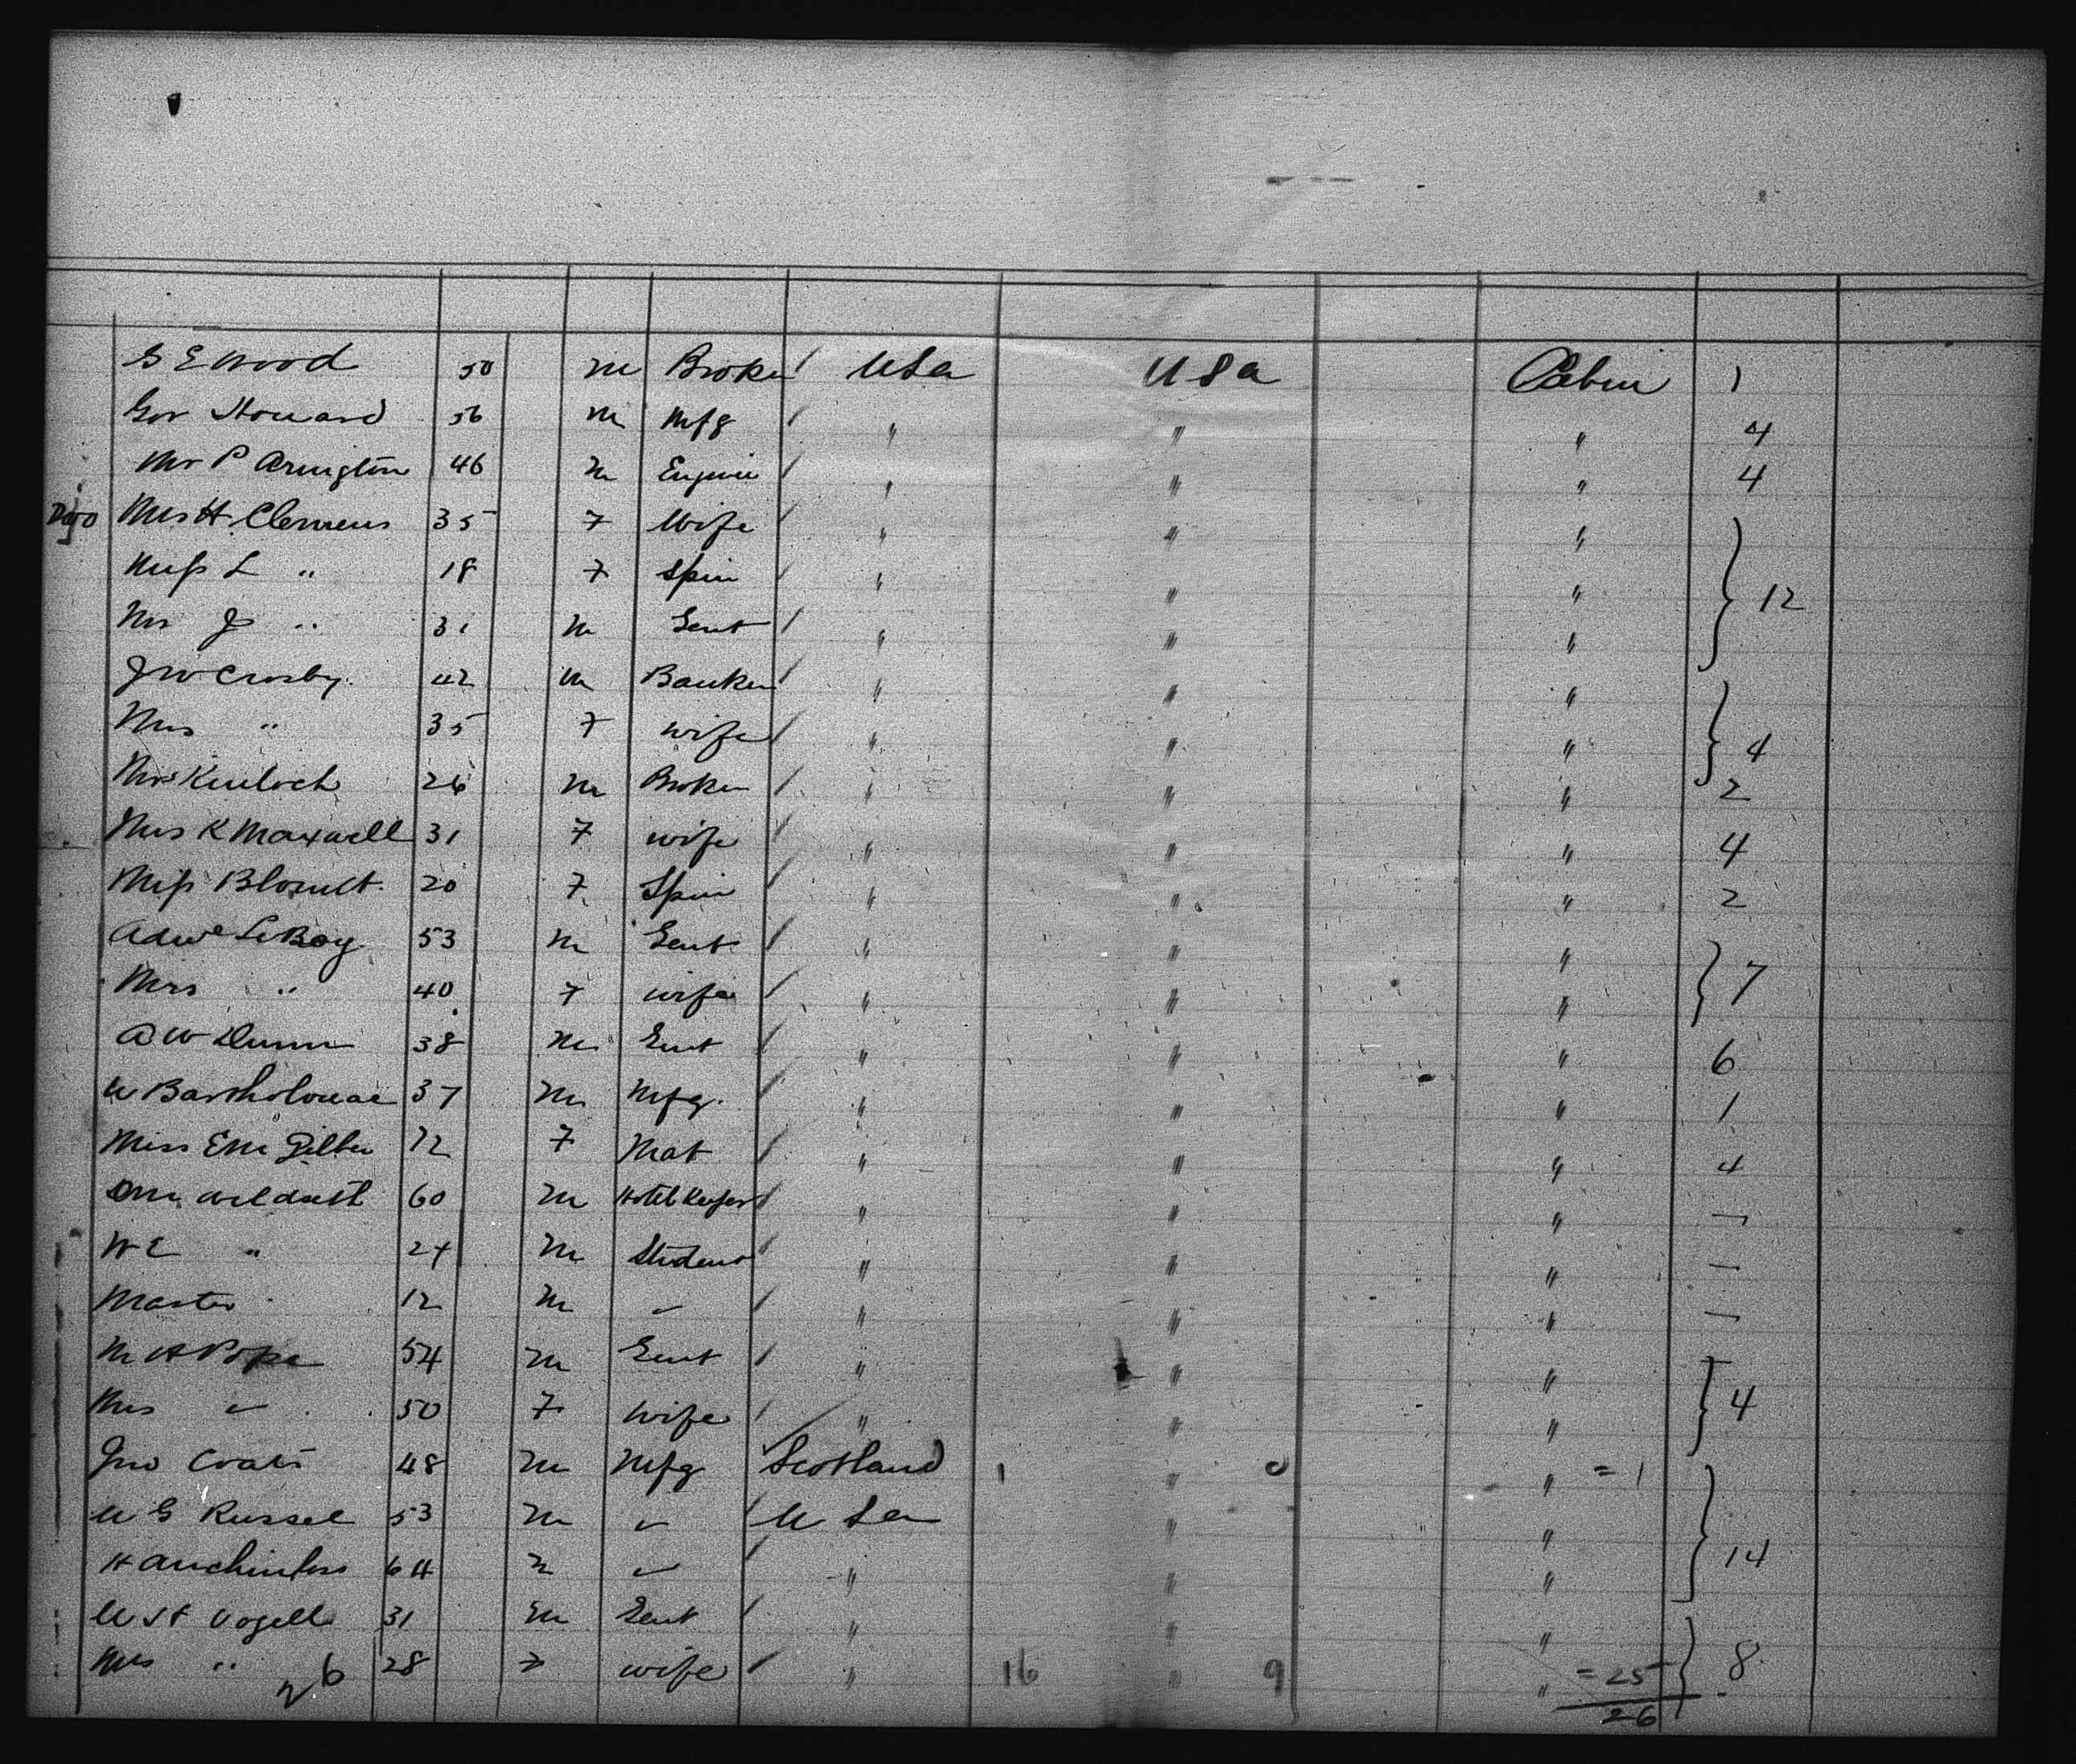 G E Wood 50 m Broker / USa USa Cabin 1
Gov Howard 56 m Mfg / " " " 4
Mr P Arington 46 m / " " " 4
Mrs H Clemens 35 7 Wife / " " "
Miss L " 18 7 Spin / " " " } 12
Mr J " 31 m Gent / " " "
J W Crosby 42 m Banker / " " "
Mrs " 35 7 wife / " " " } 4
Mr Kinloch 26 m Broker / " " " 2
Mrs K Maxwell 31 7 wife / " " " 4
Miss Blount 20 7 Spin / " " " 2
LeRoy 53 m Gent / " " "
Mrs " 40 7 wife / " " " } 7
W Dunn 38 m Gent / " " " 6
W Bartholomae 37 m Mfg. / " " " 1
Miss E M 12 7 / " " " 4
60 m Hotel Keeper / " " " —
W E " 24 m Student / " " " —
Master " 12 m " / " " " —
M H Pope 54 m Gent / " " "
Mrs " 50 7 Wife / " " " } 4
Jno Coats 48 m Mfg Scotland 1 " 0 " = 1
W G Russel 53 m " / U Sa " "
H Auchincloss 64 m " / " " " } 14
W H 31 m Gent / " " "
Mrs " 28 7 wife / " 16 " 9 " = 25 } 8
26 26